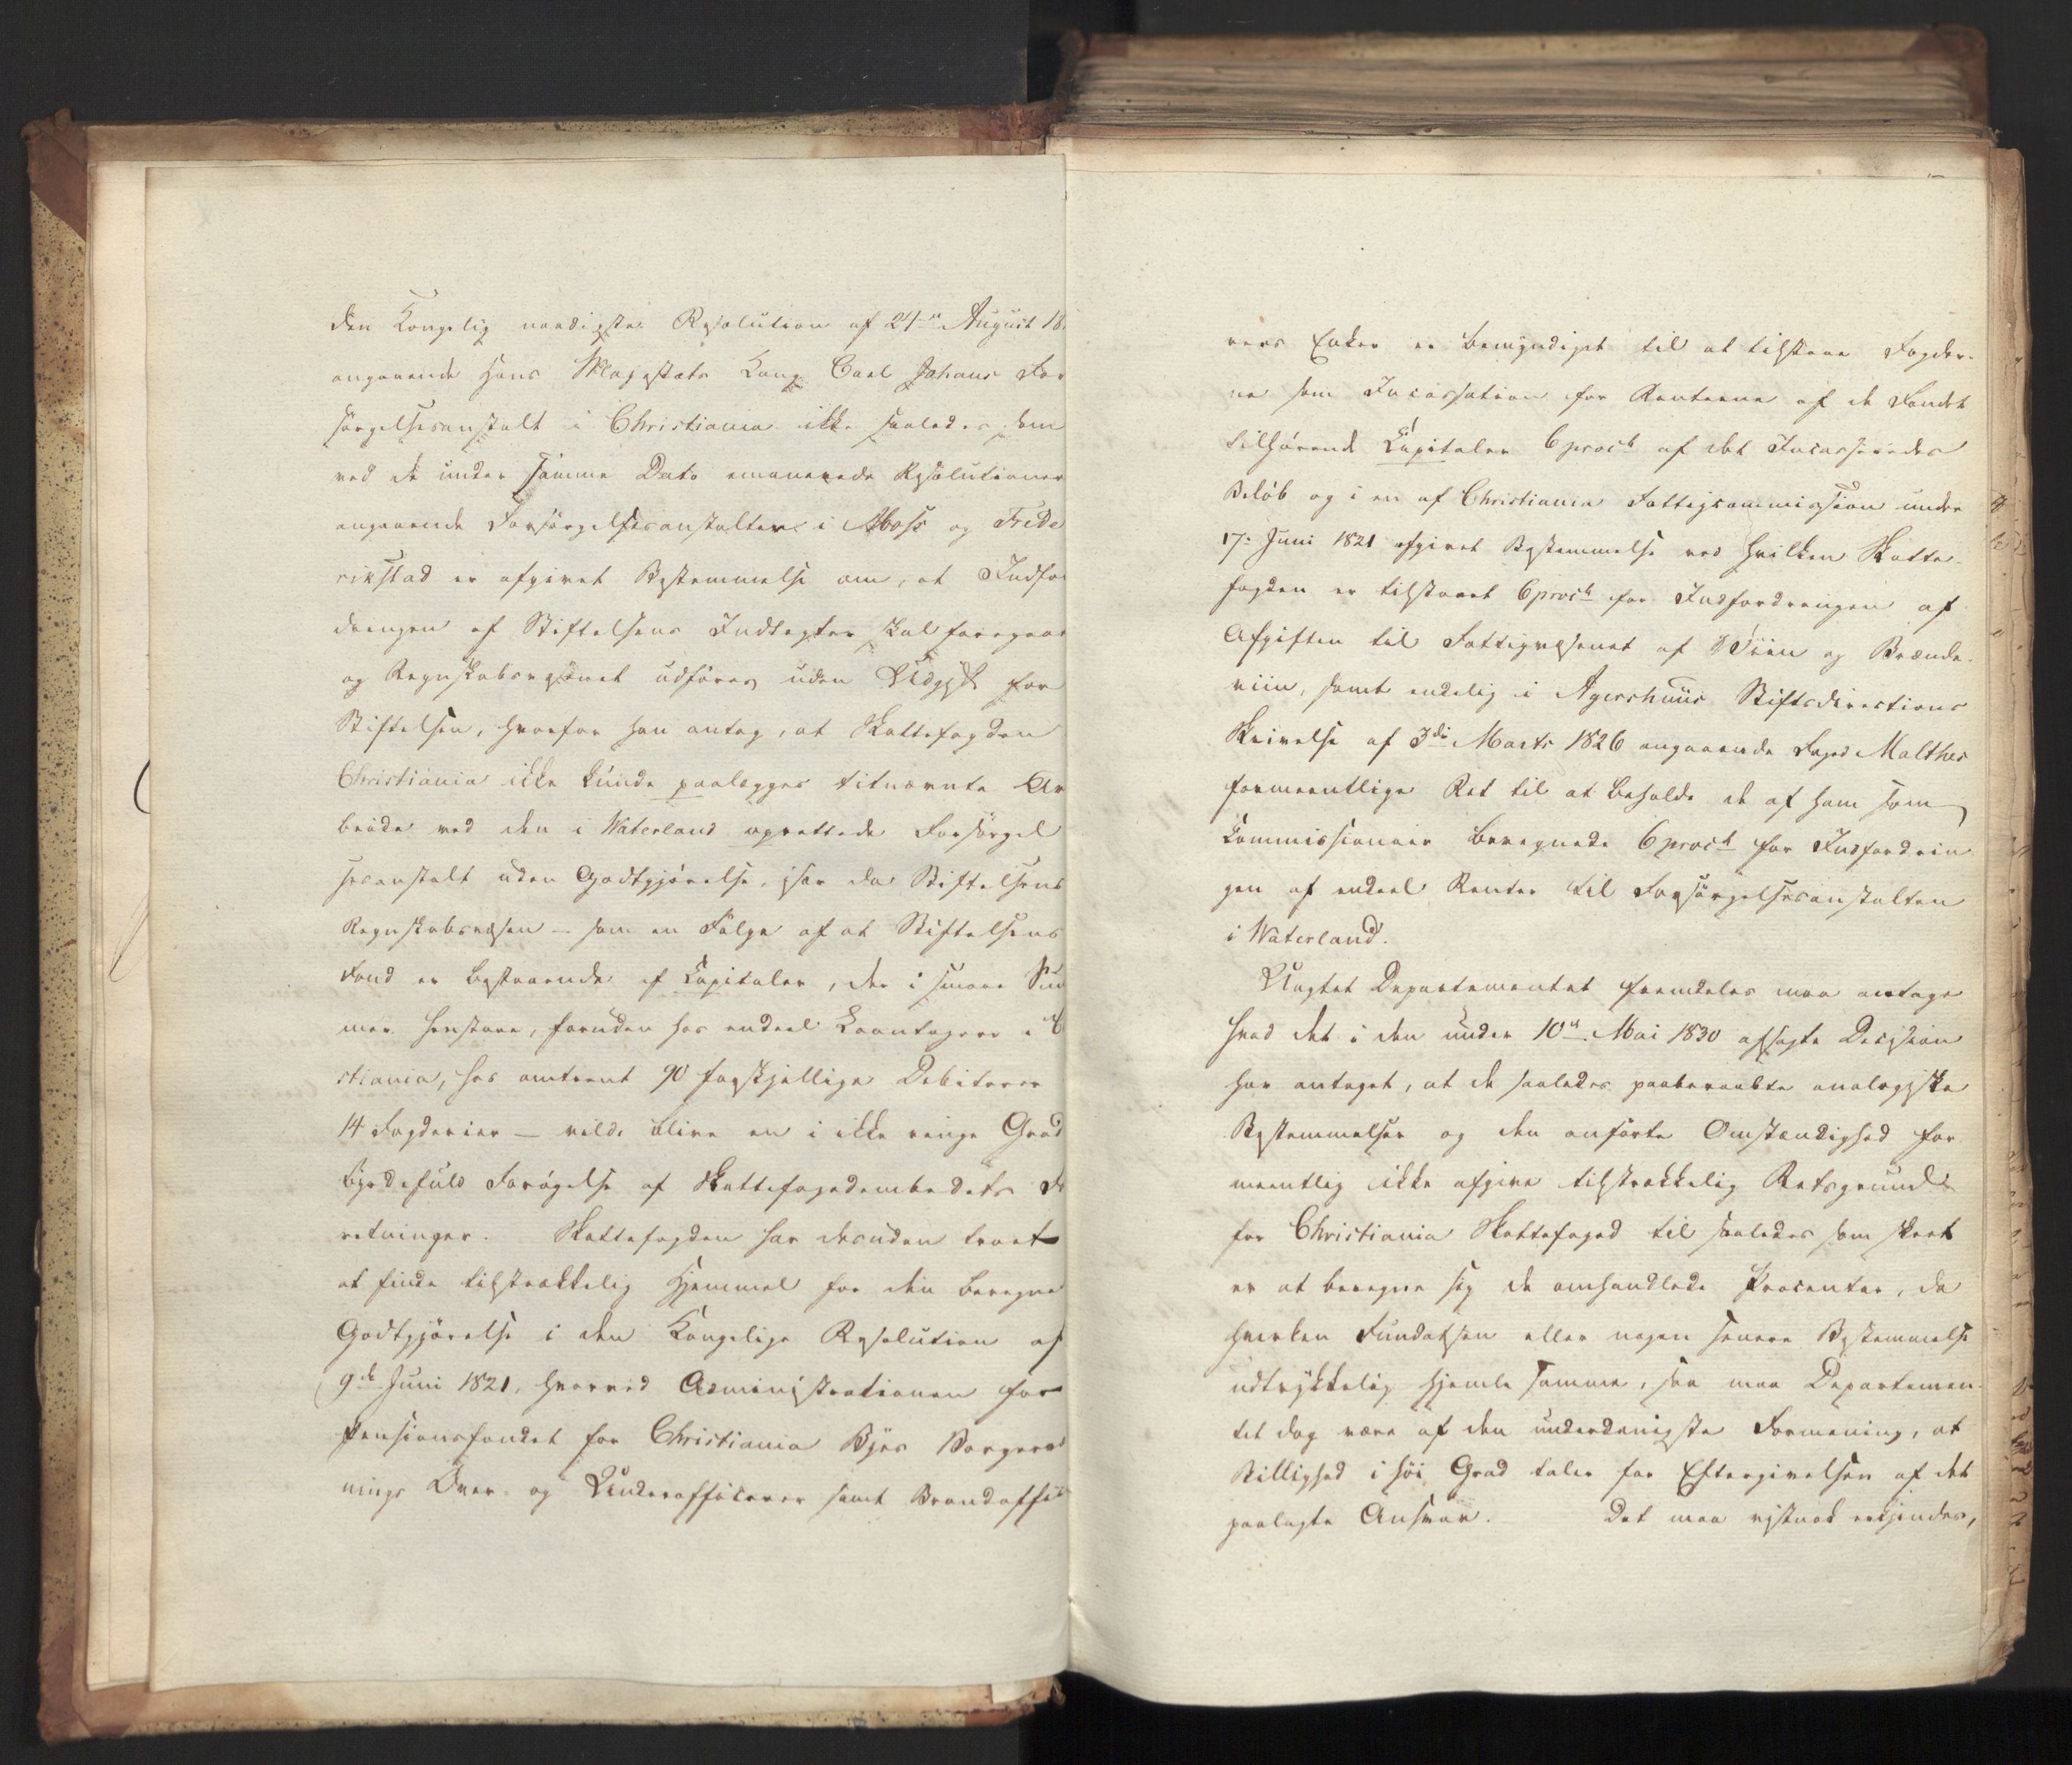 den Kongelig naadigste Resolution af 24de August 18
angaaende Hans Majestæts Kong Carl Johans For
sörgelsesanstalt i Christiania ikke saaledes som
ved de under samme Dato emanerede Resolutioner
angaaende Forsörgelsesanstalter i Moss og Frede
rikstad er afgivet Bestemmelse om, at Indfor
dringen af Stiftelsens Indtægter skal foregaae
og Regnskabsvæsenet udföres uden Udgift for
Stiftelsen, hvorfor han antog, at Skattefogden
Christiania ikke kunde paalægges titnævnte Ar
beide ved den i Waterland oprettede Forsörgel
sesanstalt uden Godtgjörelse, især da Stiftelsens
Regnskabsvæsen – som en Fölge af at Stiftelsens
Fond er bestaaende af Capitaler, der i smaae Sum
mer henstaae, foruden hos endeel Laantagere i C
stiania, hos omtrent 90 forskjellige Debitorer
14 Fogderier – vilde blive en i ikke ringe Grad
byrdefuld Forögelse af Skattefogedembedets For
retninger. Skattefogden har desuden troet
at finde tilstrækkelig Hjemmel for den beregne
Godtgjörelse i den Kongelige Resolution af
9de Juni 1821, hvorved Administrationen for
Pensionsfondet for Christiania Byes Borgerv
nings Over- og Underofficerer samt Brandoffi
rers Enker er bemyndiget til at tilstaae Fogder-
ne som Incassation for Renterne af de Fondet
tilhörende Capitaler 6 proct af det Incasserede
Belöb og i en af Christiania Fattigcommission under
17de Juni 1821 afgivet Bestemmelse ved hvilken Skatte-
fogden er tilstaaet 6 proct for Indfordringen af
Afgiften til Fattigvæsenet af Viin og Brænde-
viin, samt endelig i Agershuus Stiftsdirections
Skrivelse af 3die Marts 1826 angaaende Foged Malthes
formeentlige Ret til at beholde de af ham som
Commissionair beregnede 6 proct for Indfordrin
gen af endeel Renter til Forsörgelsesanstalten
i Waterland.
Uagtet Departementet fremdeles maa antage
hvad det i den under 10de Mai 1830 afsagte Decision
har antaget, at de saaledes paaberaabte analogiske
Bestemmelser og den anförte Omstændighed for-
meentlig ikke afgive tilstrækkelig Retsgrund
for Christiania Skattefoged til saaledes som skeet
er at beregne sig de omhandlede Procenter, da
hverken Fundatsen eller nogen senere Bestemmelse
udtrykkelig hjemle samme, saa maa Departemen-
tet dog være af den underdanigste Formening, at
Billighed i höi Grad taler for Eftergivelsen af det
paalagte Ansvar. Det maa vistnok erkjendes,